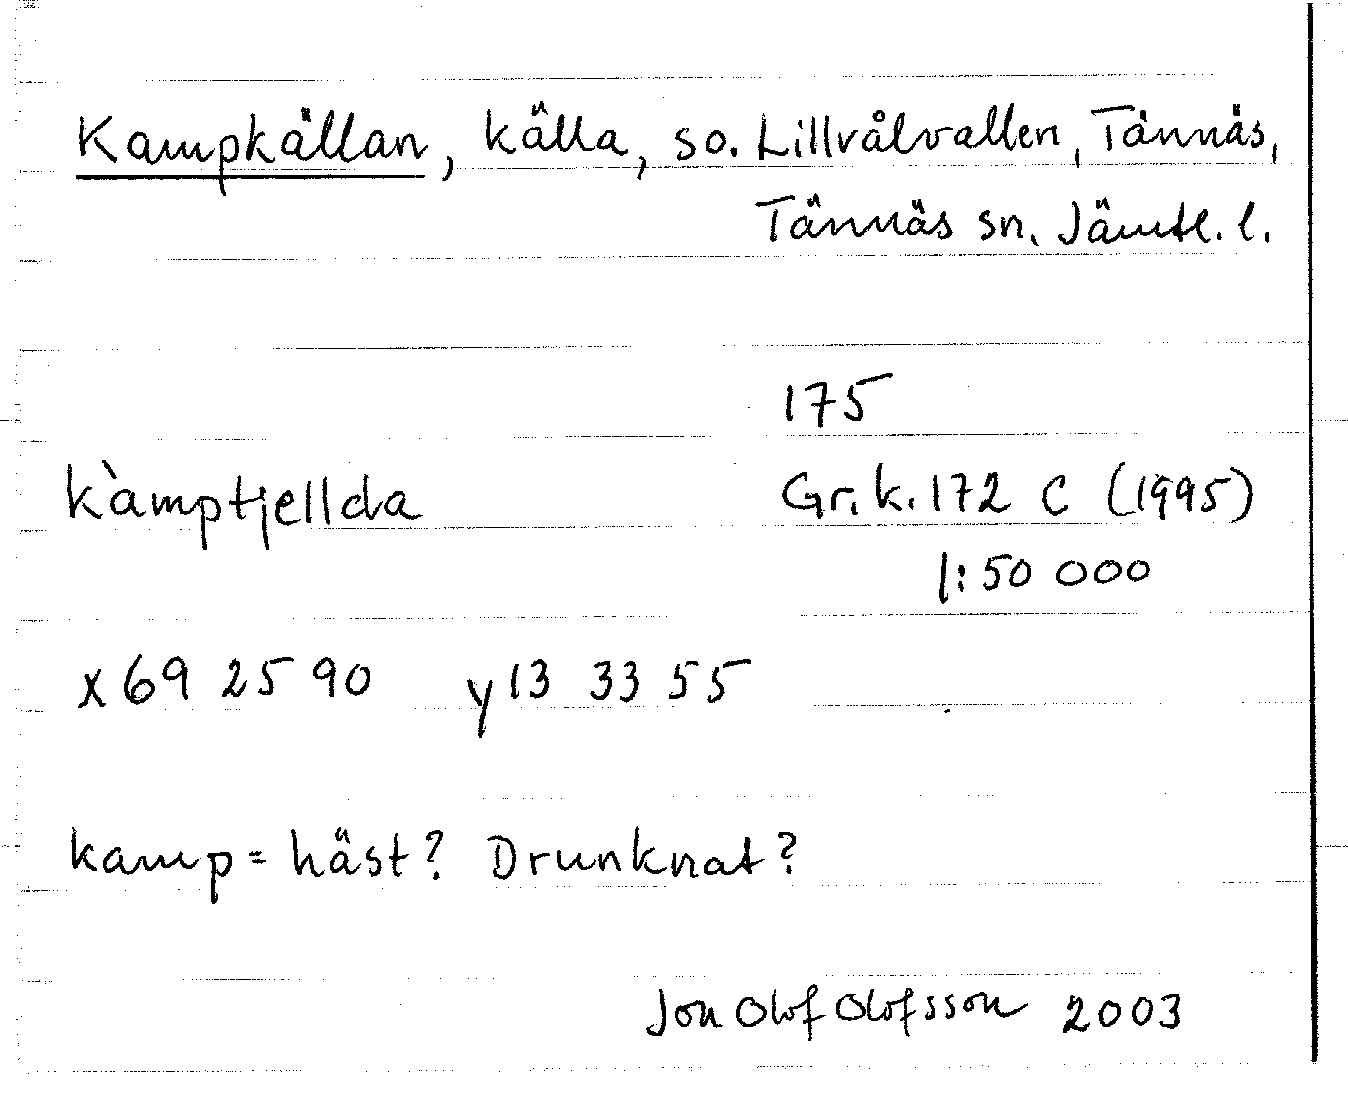 Kampkällan, källa, so. Lillvålvallen, Tännäs,
Tännäs sn. Jämtl. l.
175
kàmptjellda Gr. k. 172 C (1995)
1:50 000
x 69 25 90 y 13 33 55
kamp = häst? Drunknat?
Jon Olof Olofsson 2003